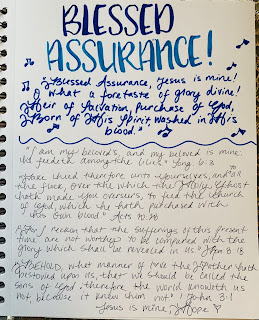 BLESSED
ASSURANCE!
Blessed Assurance, Jesus is mine!
O what a foretaste of glory divine!
Heir of Salvation, purchase of God,
Born of His Spirit, washed in His
blood."
"I am my beloved's, and my beloved is mine:
He feedeth among the lilies." Song 6:3
Take heed therefore unto yourselves, and to all
the flock, over the which the Holy Ghost
hath made you overseers, to feed the church
of God, which he hath purchased with
his own blood" Acts 20:28
For I reckon that the sufferings of this present
time are not worthy to be compared with the
glory which shall be revealed in us" Rom 8:18
BEHOLD, what manner of love the Father hath
bestowed upon us, that we should be called the
sons of God: therefore the world knoweth us
not because it knew him not" 1 John 3:1
Jesus is mine,